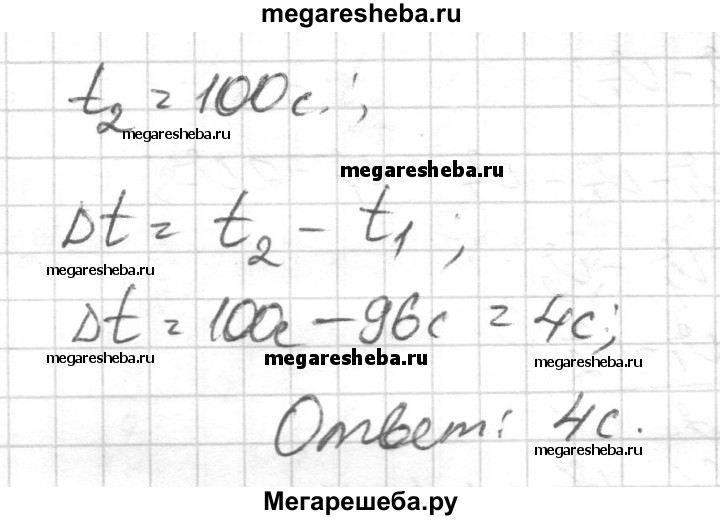 megaresheba.ru
t₂ = 100c.;
megaresheba.ru
megaresheba.ru
Δt = t₂ - t₁;
megaresheba.ru
Δt = 100c - 96c = 4c;
megaresheba.ru
megaresheba.ru
megaresheba.ru
Ответ: 4c.
megaresheba.ru
Мегарешеба.ру